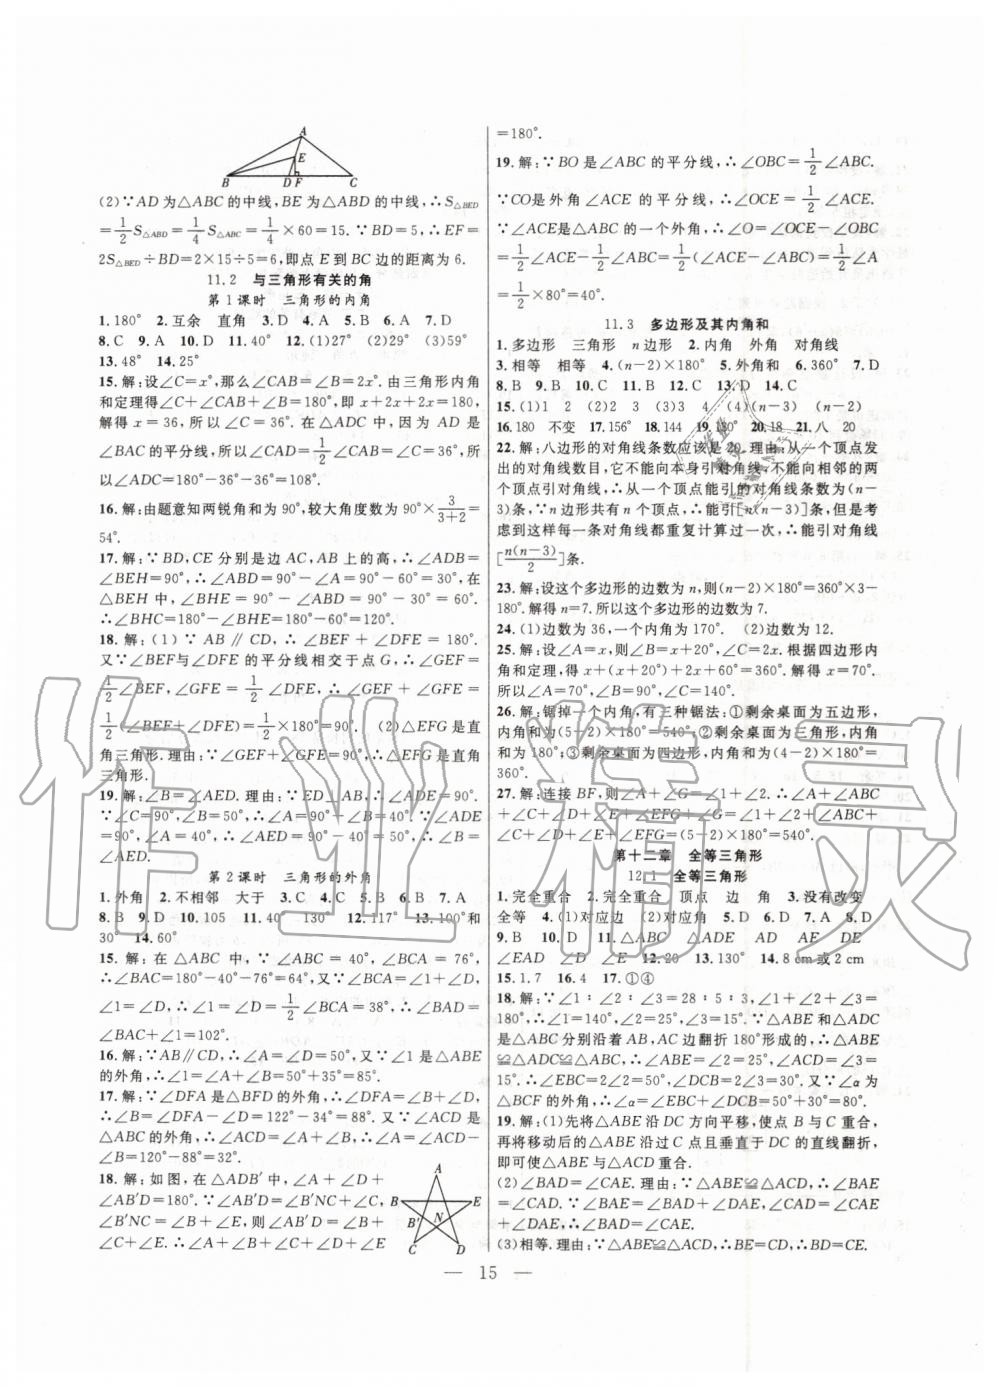 A
E
B D F C
(2)∵AD为△ABC的中线,BE为△ABD的中线,∴S△BED
=1/2S△ABD=1/4S△ABC=1/4×60=15.∵BD=5,∴EF=
2S△BED÷BD=2×15÷5=6,即点E到BC边的距离为6.
11.2 与三角形有关的角
第1课时 三角形的内角
1.180° 2.互余 直角 3.D 4.A 5.B 6.A 7.D
8.C 9.A 10.D 11.40° 12.(1)27° (2)29° (3)59°
13.48° 14.25°
15.解:设∠C=x°,那么∠CAB=∠B=2x°.由三角形内角
和定理得∠C+∠CAB+∠B=180°,即x+2x+2x=180.
解得x=36,所以∠C=36°.在△ADC中,因为AD是
∠BAC的平分线,所以∠DAC=1/2∠CAB=1/2×2×36°=36°,所
以∠ADC=180°-36°-36°=108°.
16.解:由题意知两锐角和为90°,较大角度数为90°×3/(3+2)=
54°.
17.解:∵BD,CE分别是边AC,AB上的高,∴∠ADB=
∠BEH=90°,∴∠ABD=90°-∠A=90°-60°=30°.在
△BEH中,∠BHE=90°-∠ABD=90°-30°=60°,
∴∠BHC=180°-∠BHE=180°-60°=120°.
18.解:(1)∵AB∥CD,∴∠BEF+∠DFE=180°.
又∵∠BEF与∠DFE的平分线相交于点G,∴∠GEF=
1/2∠BEF,∠GFE=1/2∠DFE,∴∠GEF+∠GFE=
1/2(∠BEF+∠DFE)=1/2×180°=90°. (2)△EFG是直
角三角形.理由:∵∠GEF+∠GFE=90°,∴△EFG是直角
三角形.
19.解:∠B=∠AED.理由:∵ED⊥AB,∴∠ADE=90°.
∵∠C=90°,∠B=50°,∴∠A=90°-∠B=40°.∵∠ADE
=90°,∠A=40°,∴∠AED=90°-40°=50°,∴∠B=
∠AED.
第2课时 三角形的外角
1.外角 2.不相邻 大于 3.C 4.B 5.C 6.B 7.A
8.B 9.D 10.105 11.40 130° 12.117° 13.100°和
30° 14.60°
15.解:在△ABC中,∵∠B=40°,∠BCA=76°,
∴∠BAC=180°-40°-76°=64°,又∵∠BCA=∠1+∠D,
∠1=∠D,∴∠1=∠D=1/2∠BCA=38°,∴∠BAD=
∠BAC+∠1=102°.
16.解:∵AB∥CD,∴∠A=∠D=50°,又∵∠1是△ABE
的外角,∴∠1=∠A+∠B=50°+35°=85°.
17.解:∵∠DFA是△BFD的外角,∴∠DFA=∠B+∠D,
∴∠B=∠DFA-∠D=122°-34°=88°.又∵∠ACD是
△ABC的外角,∴∠ACD=∠A+∠B,∴∠A=∠ACD-
∠B=120°-88°=32°.
18.解:如图,在△ADB′中,∠A+∠D+
∠AB′D=180°.∵∠AB′D=∠B′NC+∠C,
∠B′NC=∠B+∠E,则∠AB′D=∠B+
∠C+∠E.∴∠A+∠B+∠C+∠D+∠E
A
B E
B′ N
C D
=180°.
19.解:∵BO是∠ABC的平分线,∴∠OBC=1/2∠ABC.
∵CO是外角∠ACE的平分线,∴∠OCE=1/2∠ACE.
∵∠ACE是△ABC的一个外角,∴∠O=∠OCE-∠OBC
=1/2∠ACE-1/2∠ABC=1/2(∠ACE-∠ABC)=1/2∠A
=1/2×80°=40°.
11.3 多边形及其内角和
1.多边形 三角形 n边形 2.内角 外角 对角线
3.相等 相等 4.(n-2)×180° 5.外角和 6.360° 7.D
8.B 9.B 10.C 11.B 12.C 13.D 14.C
15.(1)1 2 (2)2 3 (3)3 4 (4)(n-3) (n-2)
16.180 不变 17.156° 18.144 19.180° 20.18 21.八 20
22.解:八边形的对角线条数应该是20.理由:从一个顶点发
出的对角线数目,它不能向本身引对角线,不能向相邻的两
个顶点引对角线,∴从一个顶点能引的对角线条数为(n-
3)条,∵n边形共有n个顶点,∴能引[n(n-3)]条,但是考
虑到这样每一条对角线都重复计算过一次,∴能引对角线
[n(n-3)/2]条.
23.解:设这个多边形的边数为n,则(n-2)×180°=360°×3-
180°.解得n=7.所以这个多边形的边数为7.
24.(1)边数为36,一个内角为170°. (2)边数为12.
25.解:设∠A=x,则∠B=x+20°,∠C=2x.根据四边形内
角和定理,得x+(x+20°)+2x+60°=360°.解得x=70°.
所以∠A=70°,∠B=90°,∠C=140°.
26.解:锯掉一个内角,有三种锯法:①剩余桌面为五边形,
内角和为(5-2)×180°=540°;②剩余桌面为三角形,内角
和为180°;③剩余桌面为四边形,内角和为(4-2)×180°=
360°.
27.解:连接BF,则∠A+∠G=∠1+∠2.∴∠A+∠ABC
+∠C+∠D+∠E+∠EFG+∠G=∠1+∠2+∠ABC
+∠C+∠D+∠E+∠EFG=(5-2)×180°=540°.
第十二章 全等三角形
12.1 全等三角形
1.完全重合 2.完全重合 顶点 边 角 3.没有改变
全等 4.(1)对应边 (2)对应角 5.D 6.D 7.A 8.D
9.B 10. 11.△ABC △ADE AD AE DE
∠EAD ∠D ∠E 12.20 13.130° 14.8 cm或2 cm
15.1.7 16.4 17.①④
18.解:∵∠1∶∠2∶∠3=28∶5∶3,∠1+∠2+∠3=180°,
∴∠1=140°,∠2=25°,∠3=15°.∵△ABE和△ADC
是△ABC分别沿着AB,AC边翻折180°形成的,∴△ABE
≌△ADC≌△ABC,∴∠ABE=∠2=25°,∠ACD=∠3=
15°,∴∠EBC=2∠2=50°,∠DCB=2∠3=30°.又∵∠α为
△BCF的外角,∴∠α=∠EBC+∠DCB=50°+30°=80°.
19.解:(1)先将△ABE沿DC方向平移,使点B与C重合,
再将移动后的△ABE沿过C点且垂直于DC的直线翻折,
即可使△ABE与△ACD重合.
(2)∠BAD=∠CAE.理由:∵△ABE≌△ACD,∴∠BAE
=∠CAD.∵∠BAE=∠BAD+∠DAE,∠CAD=∠CAE
+∠DAE,∴∠BAD=∠CAE.
(3)相等.理由:∵△ABE≌△ACD,∴BE=CD,∴BD=CE.
— 15 —
作业精灵